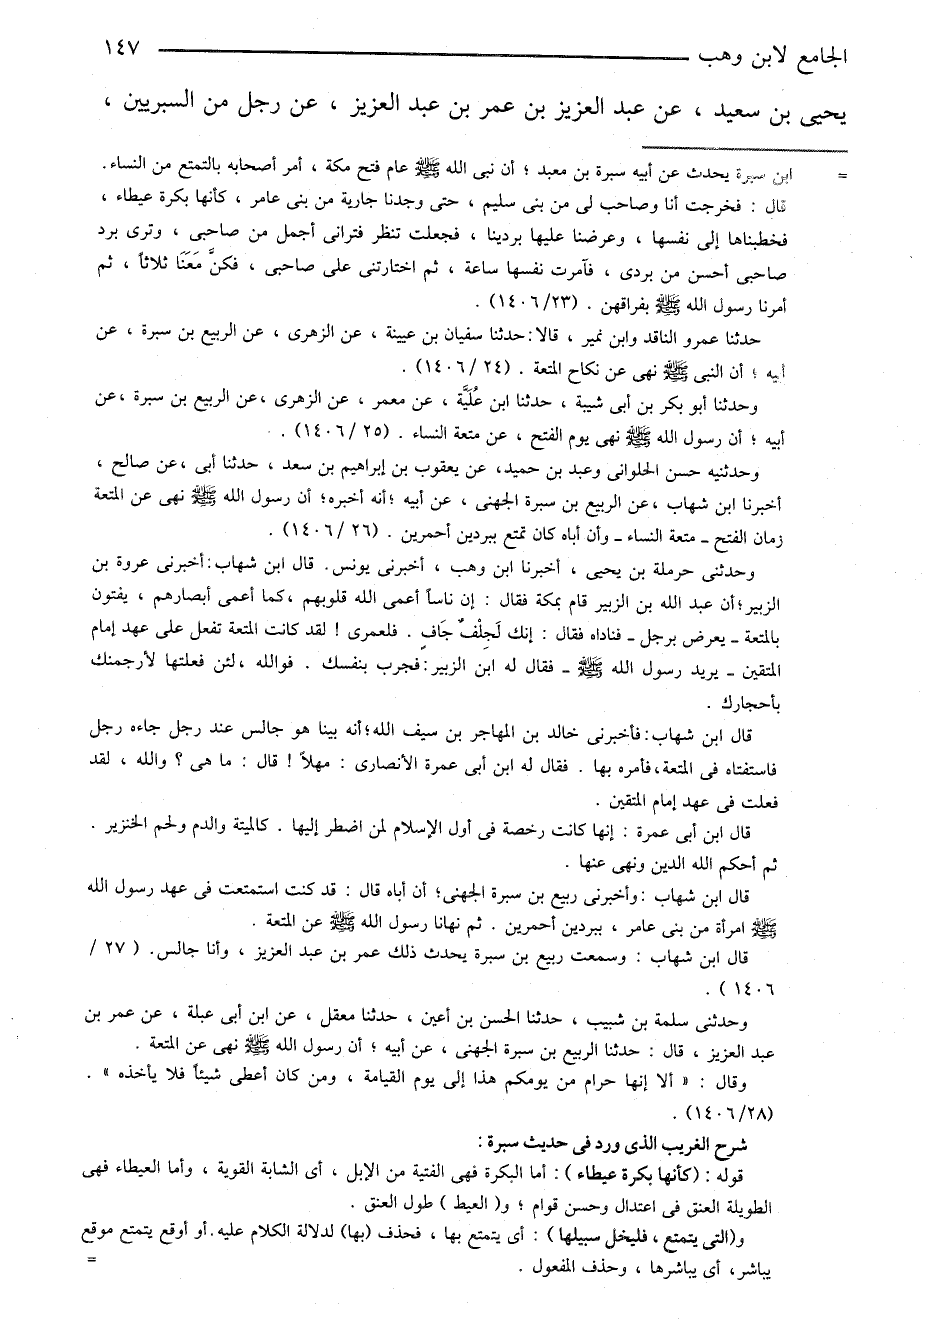 الجامع لابن وهب ١٤٧
يحيى بن سعيد ، عن عبد العزيز بن عمر بن عبد العزيز ، عن رجل من السبريين ،
= ابن سبرة يحدث عن أبيه سبرة بن معبد ؛ أن نبى الله ﷺ عام فتح مكة ، أمر أصحابه بالتمتع من النساء.
قال : فخرجت أنا وصاحب لى من بنى سليم ، حتى وجدنا جارية من بنى عامر ، كأنها بكرة عيطاء ،
فخطبناها إلى نفسها ، وعرضنا عليها بردينا ، فجعلت تنظر فترانى أجمل من صاحبى ، وترى برد
صاحبى أحسن من بردى ، فآمرت نفسها ساعة ، ثم اختارتنى على صاحبى ، فكنَّ مَعَنَا ثلاثاً ، ثم
أمرنا رسول الله ﷺ بفراقهن . (١٤٠٦/٢٣) .
حدثنا عمرو الناقد وابن نمير ، قالا: حدثنا سفيان بن عيينة ، عن الزهرى ، عن الربيع بن سبرة ، عن
أبيه ؛ أن النبى ﷺ نهى عن نكاح المتعة . (٢٤ / ١٤٠٦) .
وحدثنا أبو بكر بن أبى شيبة ، حدثنا ابن عُلَيَّة ، عن معمر ، عن الزهرى ،عن الربيع بن سبرة ،عن
أبيه ؛ أن رسول الله ﷺ نهى يوم الفتح ، عن متعة النساء . (٢٥ / ١٤٠٦) .
وحدثنيه حسن الحلوانى وعبد بن حميد، عن يعقوب بن إبراهيم بن سعد ، حدثنا أبى ،عن صالح ،
أخبرنا ابن شهاب ،عن الربيع بن سبرة الجهنى ، عن أبيه ؛أنه أخبره؛ أن رسول الله ﷺ نهى عن المتعة
زمان الفتح ـ متعة النساء ـ وأن أباه كان تمتع ببردين أحمرين . (٢٦ / ١٤٠٦) .
وحدثنى حرملة بن يحيى ، أخبرنا ابن وهب ، أخبرنى يونس. قال ابن شهاب:أخبرنى عروة بن
الزبير؛أن عبد الله بن الزبير قام بمكة فقال : إن ناساً أعمى الله قلوبهم ،كما أعمى أبصارهم ، يفتون
بالمتعة ـ يعرض برجل ـ فناداه فقال : إنك لَجِلْفٌ جَافٍ . فلعمرى ! لقد كانت المتعة تفعل على عهد إمام
المتقين ـ يريد رسول الله ﷺ ـ فقال له ابن الزبير:فجرب بنفسك . فوالله ،لئن فعلتها لأرجمنك
بأحجارك .
قال ابن شهاب:فأخبرنى خالد بن المهاجر بن سيف الله؛أنه بينا هو جالس عند رجل جاءه رجل
فاستفتاه فى المتعة،فأمره بها . فقال له ابن أبى عمرة الأنصارى : مهلاً ! قال : ما هى ؟ والله ، لقد
فعلت فى عهد إمام المتقين .
قال ابن أبى عمرة : إنها كانت رخصة فى أول الإسلام لمن اضطر إليها . كالميتة والدم ولحم الخنزير .
ثم أحكم الله الدين ونهى عنها .
قال ابن شهاب :وأخبرنى ربيع بن سبرة الجهنى؛ أن أباه قال : قد كنت استمتعت فى عهد رسول الله
ﷺ امرأة من بنى عامر ، ببردين أحمرين . ثم نهانا رسول الله ﷺ عن المتعة .
قال ابن شهاب : وسمعت ربيع بن سبرة يحدث ذلك عمر بن عبد العزيز ، وأنا جالس. ( ٢٧ /
١٤٠٦ ) .
وحدثنى سلمة بن شبيب ، حدثنا الحسن بن أعين ، حدثنا معقل ، عن ابن أبى عبلة ، عن عمر بن
عبد العزيز ، قال : حدثنا الربيع بن سبرة الجهنى ، عن أبيه ؛ أن رسول الله ﷺ نهى عن المتعة .
وقال : « ألا إنها حرام من يومكم هذا إلى يوم القيامة ، ومن كان أعطى شيئاً فلا يأخذه » .
(١٤٠٦/٢٨) .
شرح الغريب الذى ورد فى حديث سبرة :
قوله : (كأنها بكرة عيطاء ) : أما البكرة فهى الفتية من الإبل ، أى الشابة القوية ، وأما العيطاء فهى
الطويلة العنق فى اعتدال وحسن قوام ؛ و( العيط ) طول العنق .
و(التى يتمتع ، فليخل سبيلها ) : أى يتمتع بها ، فحذف (بها) لدلالة الكلام عليه.أو أوقع يتمتع موقع
يباشر، أى يباشرها ، وحذف المفعول . =